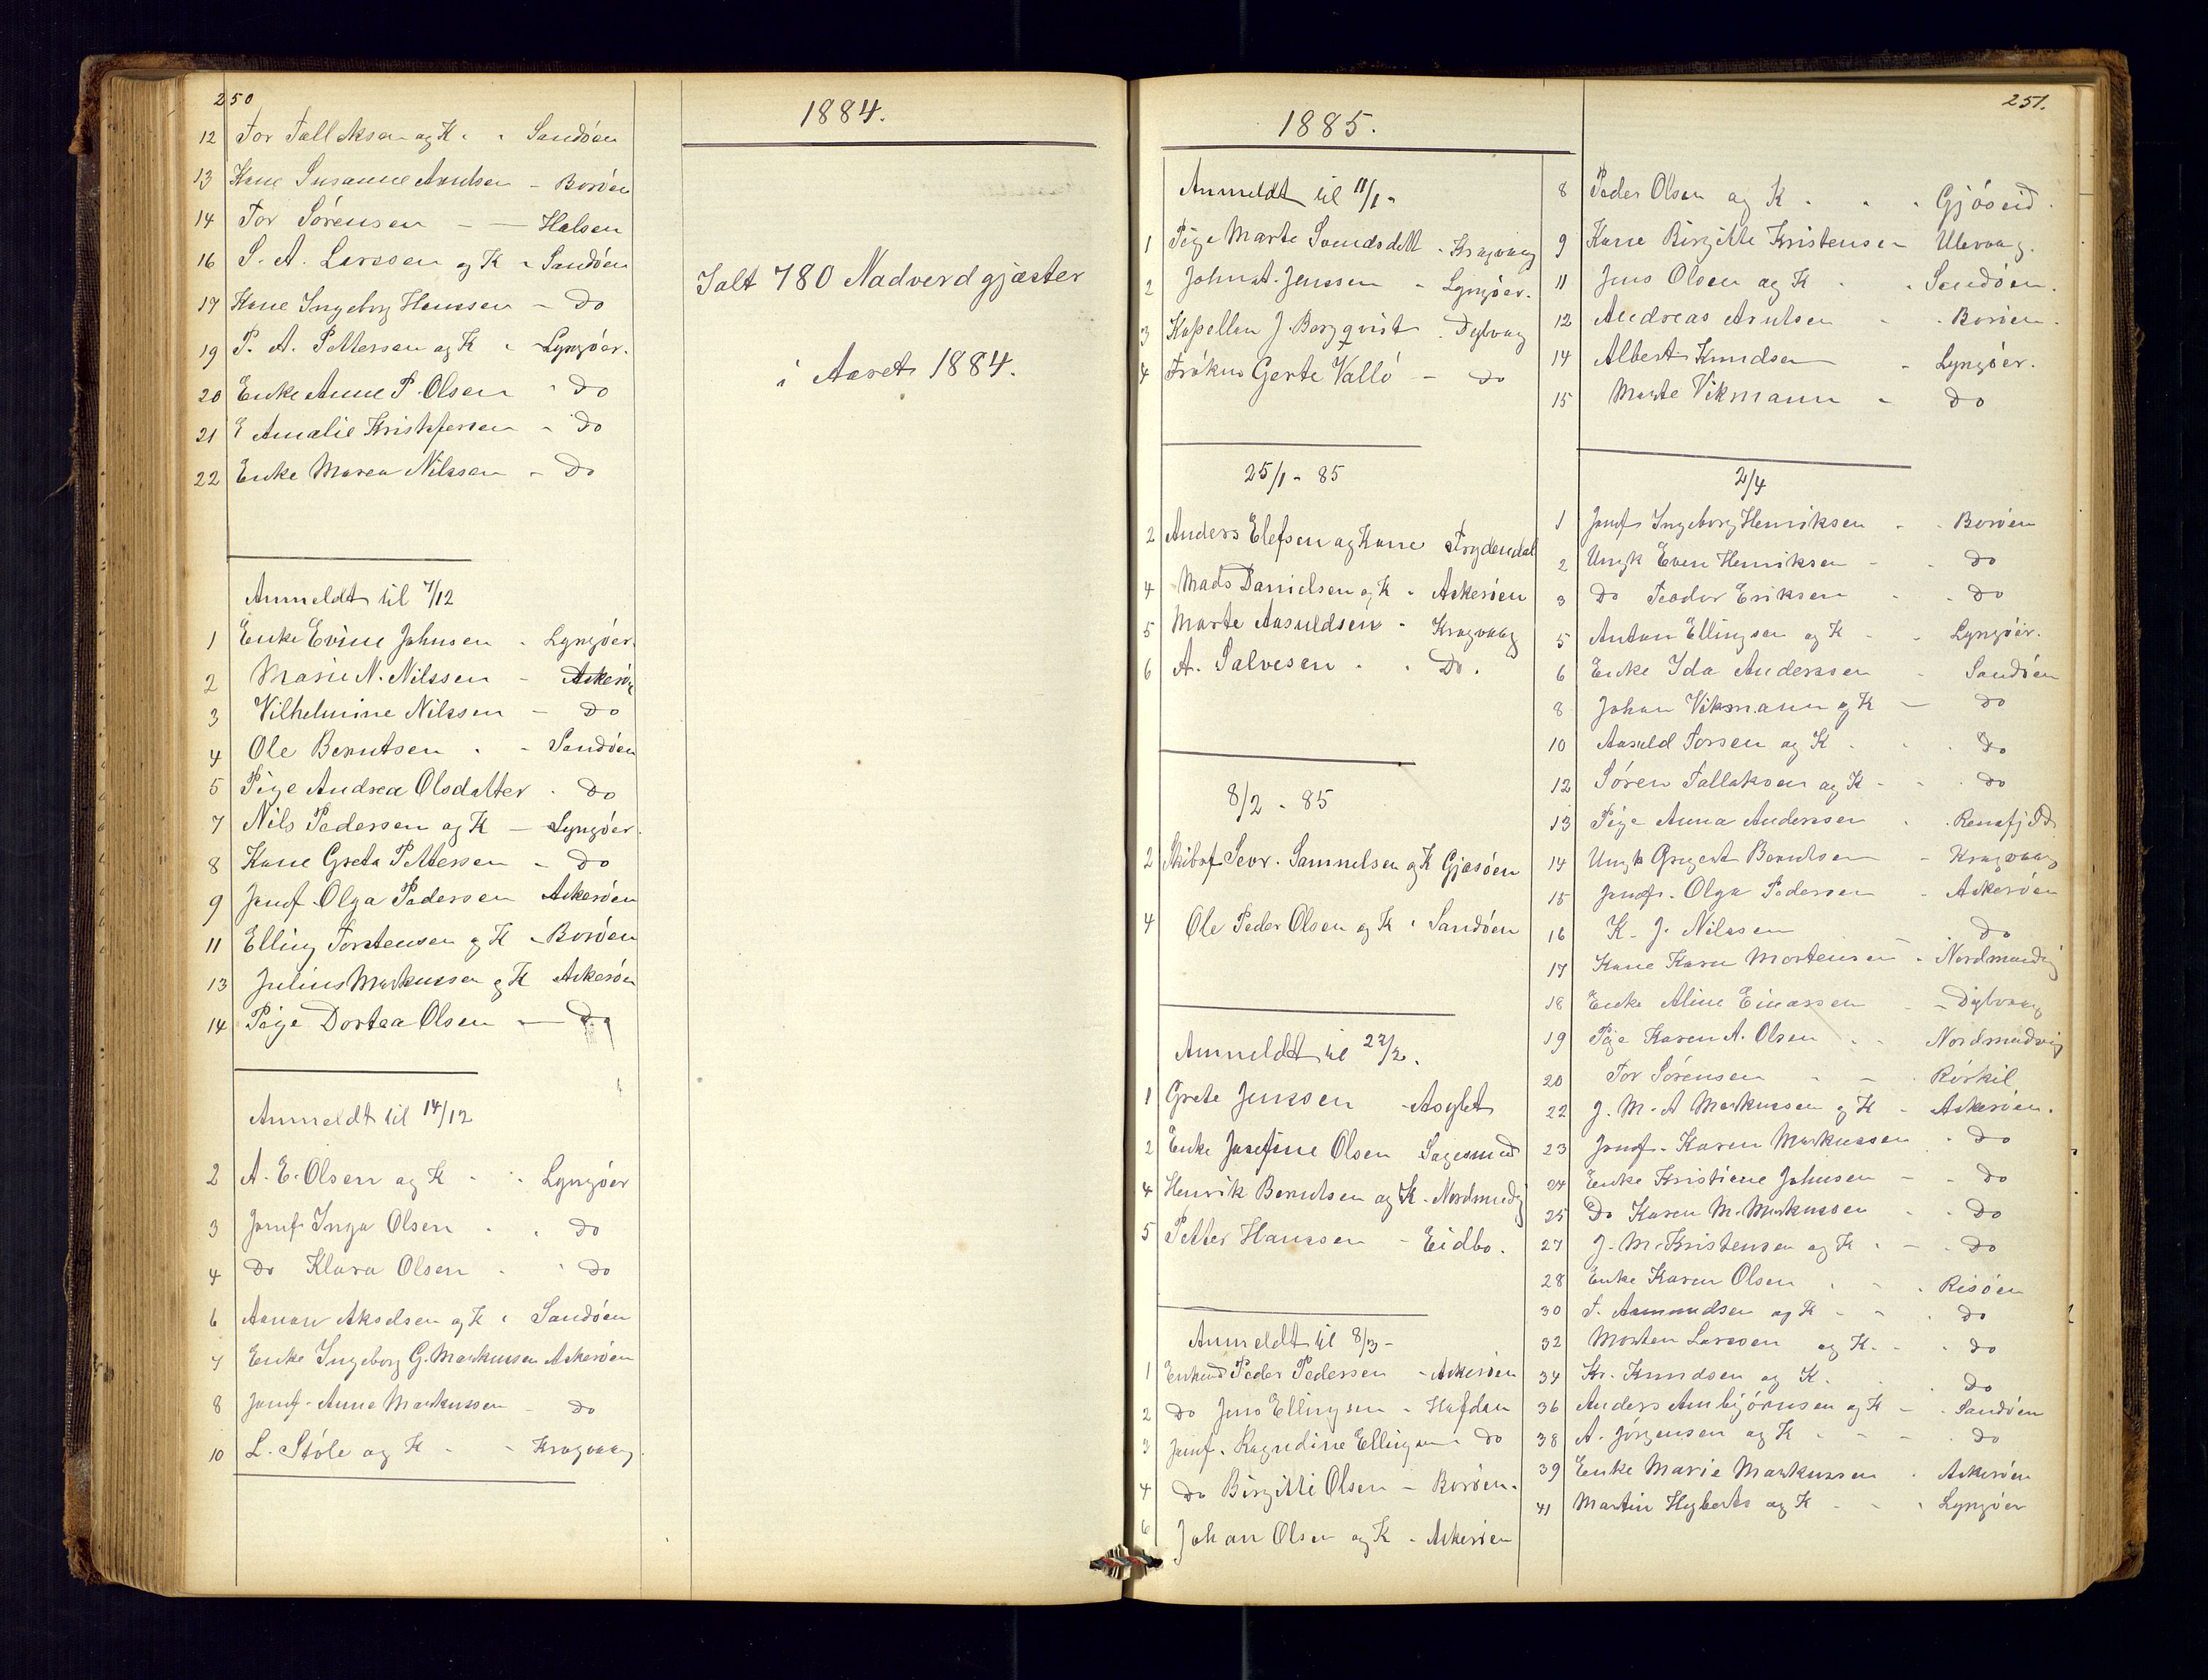 250
1884.
12 Tor Tallaksen og K. " Sandöen
13 Kone Susanne Arntsen - Boröen
14 Tor Sörensen - - Holsen
16 S. A. Larssen og K " Sandöen
17 Kone Ingeborg Hansen - Do
19 P. A. Pettersen og K " Lyngöer.
20 Enke Anne P. Olsen " Do
21 E Amalie Kristofersen - Do
22 Enke Maren Nilssen - Do
Anmeldt til 7/12
1 Enke Evine Johnsen - Lyngöer.
2 Marie N. Nilssen - Askeröe
3 Vilhelmine Nilssen - Do
4 Ole Berntsen . - Sandöen
5 Pige Andrea Olsdatter . Do
7 Nils Pedersen og K - Lyngöer.
8 Kone Grete Pettersen - Do
9 Jomf. Olga Pedersen Askeröen
11 Elling Torstensen og K - Boröen
13 Julius Markussen og K Askeröen
14 Pige Dortea Olsen - Do
Anmeldt til 14/12
2 A. E. Olsen og K . . Lyngöer
3 Jomf Inga Olsen . . Do
4 Do Klara Olsen . . Do
6 Aanon Akselsen og K . Sandöen
7 Enke Ingeborg G. Markussen Askeröen
8 Jomf. Anna Markussen - Do
10 L. Stöle og K - - Kragvaag.
Ialt 780 Nadverdgjæster
i Aaret 1884.
1885.
251.
Anmeldt til 11/1 -
1 Pige Marte Svendsdatt - Kragvaag
2 Johan A. Jenssen - Lyngöer.
3 Kapellan J. Bergqvist . Dybvaag
4 Fröken Gerte Vallö - Do
25/1 - 85
2 Anders Elefsen og Kone Frydendal
4 Mads Danielsen og K . Askeröen
5 Marte Aasuldsen - Kragvaag
6 A. Salvesen . . Do .
8/2 - 85
2 Skibsf Sevr. Samuelsen og K Gjesöen
4 Ole Peder Olsen og K . Sandöen
Anmeldt til 22/2 .
1 Grete Jenssen - Asylet
2 Enke Josefine Olsen Sagesund
4 Henrik Berntsen og K - Nordmudvig
5 Petter Hanssen - Eidbo.
Anmeldt til 8/3 -
1 Enkemd Peder Pedersen - Askeröen
2 Do Jens Ellingsen - Hafdan
3 Jomf. Ragndine Ellingsen . Do
4 Do Birgitte Olsen - Boröen.
6 Johan Olsen og K . Askeröen
8 Peder Olsen og K . . . Gjöseid .
9 Kone Birgitte Kristensen Ulevaag.
11 Jens Olsen og K . . Sandöen.
12 Andreas Arntsen - . Boröen.
14 Albert Knudsen - Lyngöer.
15 Marte Vikmann - Do
2/4
1 Jomf. Ingeborg Henriksen - . Boröen
2 Ungk Even Henriksen - . Do
3 Do Teodor Eriksen . . Do
5 Anton Ellingsen og K - . Lyngöer.
6 Enke Ida Anderssen - Sandöen
8 Johan Vikmann og K - Do
10 Aasuld Torsen og K . . . Do
12 Sören Tallaksen og K - - . Do
13 Pige Anna Anderssen . . Rensfjeld
14 Ungk Gregert Berntsen - Kragvaag
15 Jomfr. Olga Pedersen - Askeröen
16 K. J. Nilssen Do
17 Kone Karen Mortensen - . Nordmundvig
18 Enke Aline Einarssen - - Dybvaag
19 Pige Karen A. Olsen . . Nordmudvig
20 Tor Sörensen . - . Rörkil
22 J. M. A Markussen og K - Askeröen.
23 Jomf. Karen Markussen . Do
24 Enke Kristiane Johnsen - - Do
25 Do Karen M. Markussen . . Do
27 J. M. Kristensen og K . - . Do
28 Enke Karen Olsen . . . Risöen
30 T. Aamundsen og K - - . Do
32 Morten Larssen og K. - . Do
34 Kr. Knudsen og K. . . Do
36 Anders Anbjörnsen og K - . Sandöen
38 A. Jörgensen og K - - - . Do
39 Enke Marie Markussen . Askeröen
41 Martin Hyberts og K - - . Lyngöer